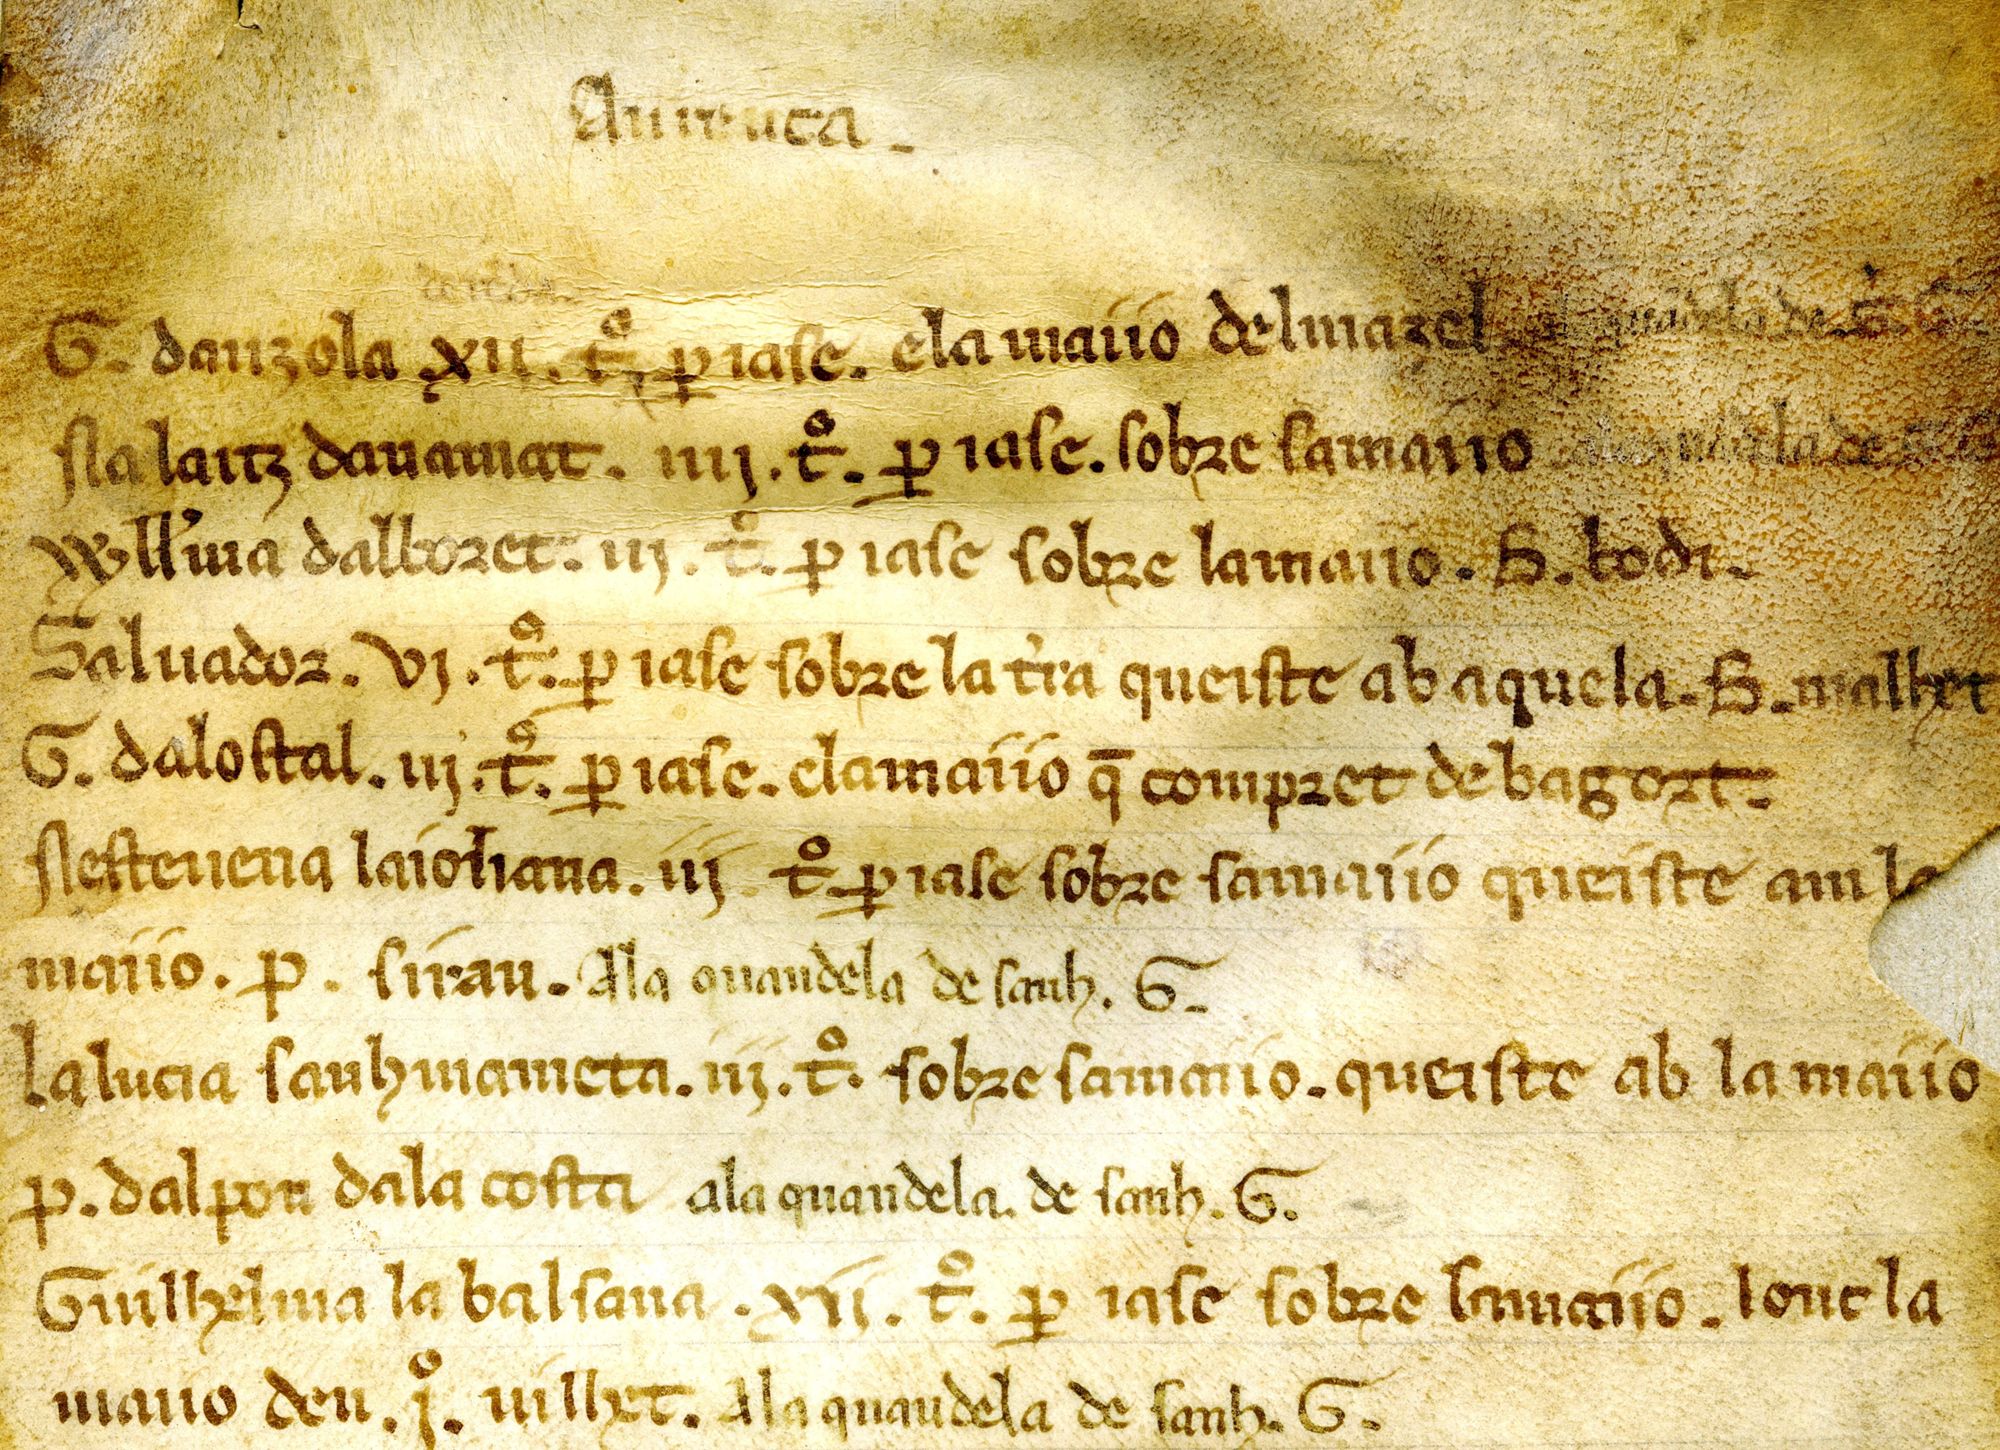 G. danzola xii. t̄º. ꝑ iase. ela maiio delmazel
sla laitz davamat. iiij. t̄º. ꝑ iase. sobre samaiio
Will'ma dalboret. iij. t̄º. ꝑ iase sobre lamaiio. S. bodi.
Salvador. vj. t̄º. ꝑ iase sobre la t'ra queiste ab aquela. S. malhet
G. dalostal. iij. t̄º. ꝑ iase. elamaiio q̄ compret de bagort.
sestevena laiohana. iij. t̄º. ꝑ iase sobre samaiio queiste am la
maiio. p. sirau. Ala quandela de sanh. G.
la lucia sanhmameta. iij. t̄º. sobre samaiio. queiste ab la maiio
p. dalpon dala costa ala quandela. de sanh. G.
Guilhelma la balsana. xij. t̄º. ꝑ iase sobre lamaiio. lonc la
maiio den. jº. vilhet. Ala quandela de sanh. G.